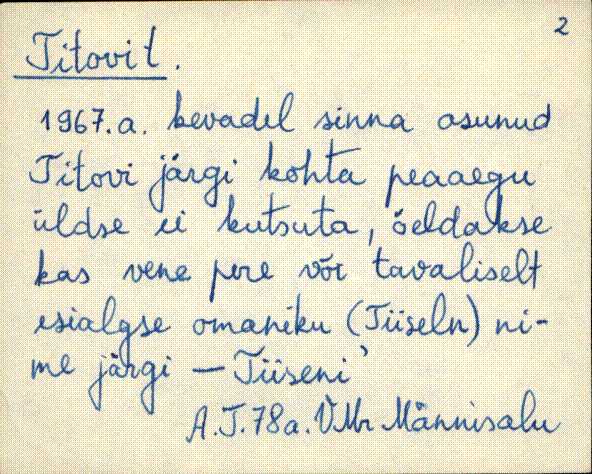 2
Titovit.
1967.a. kevadel sinna asunud
Titovi järgi kohta peaaegu
üldse ei kutsuta, öeldakse
kas vene pere või tavaliselt
esialgse omaniku (Tiiseln) ni-
me järgi — Tiiseni'
A.T. 78a. VMr Männisalu